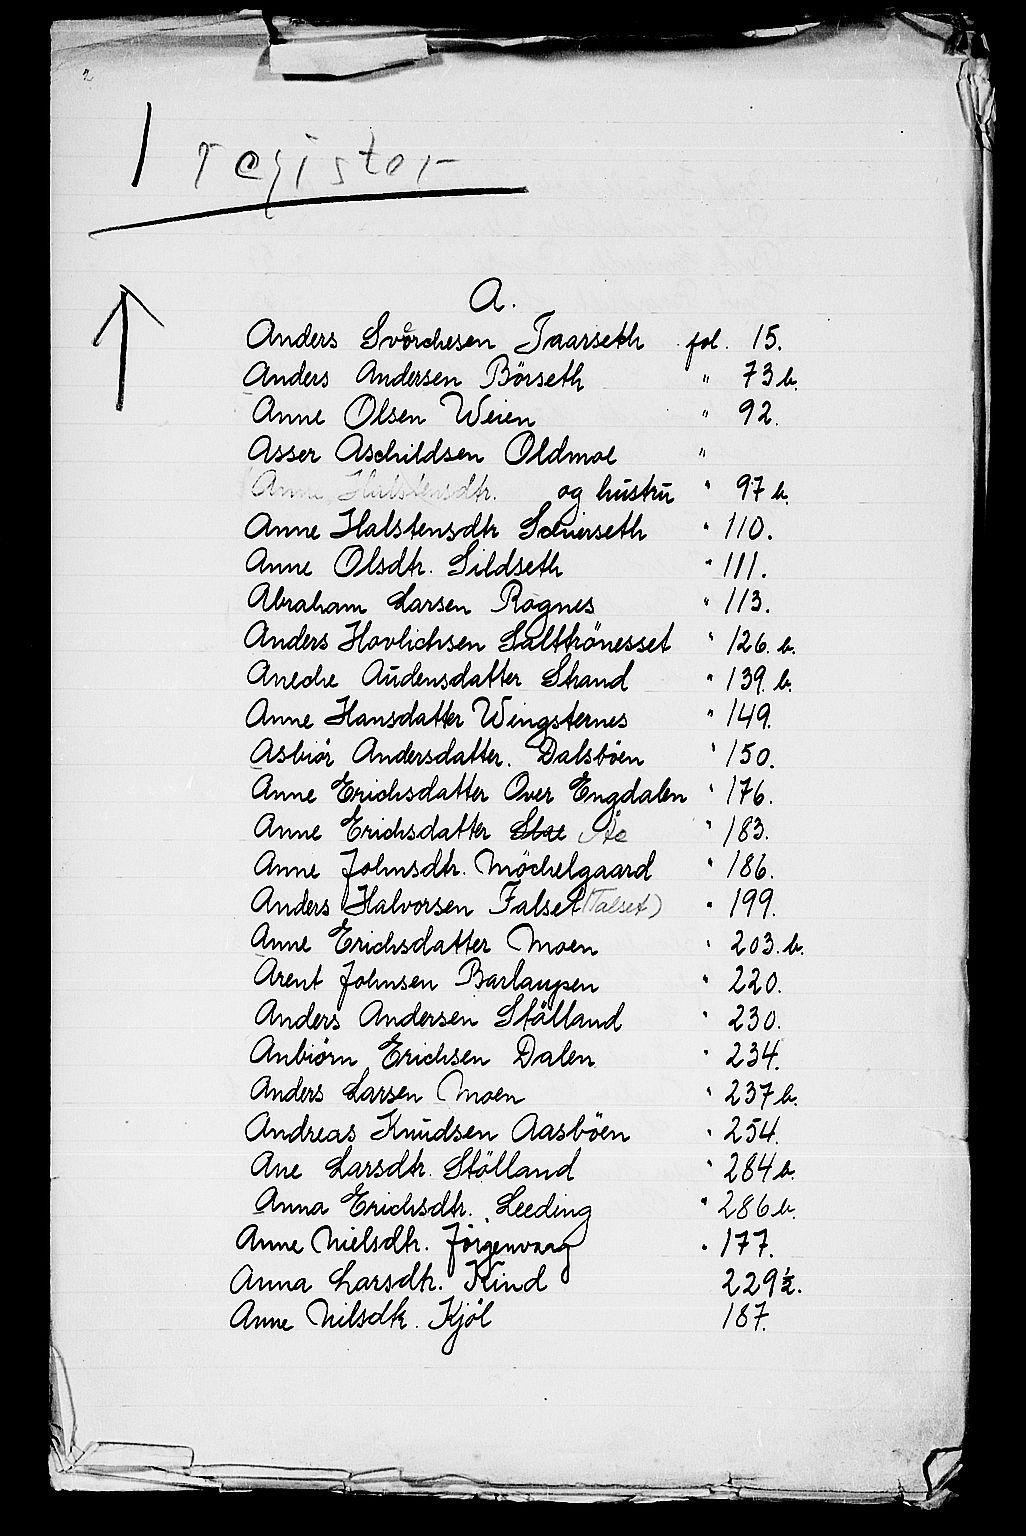 1 register
A.
Anders Svörchesen Taarseth fol. 15.
Anders Andersen Börseth " 73 b.
Anne Olsen Weien " 92.
Asser Aschildsen Oldmoe "
Anne Halstensdtr. og hustru " 97 b.
Anne Halstensdtr Schierseth " 110.
Anne Olsdtr. Sildseth " 111.
Abraham Larsen Rognes " 113.
Anders Hovlichsen Salttrönesset " 126. b.
Aneche Audensdatter Strand " 139. b.
Anne Hansdatter Wingsternes " 149.
Asbiör Andersdatter. Dalsböen " 150.
Anne Erichsdatter Over Engdalen " 176.
Anne Erichsdatter " 183.
Anne Johnsdtr. Möchelgaard " 186.
Anders Halvorsen Falset (Talset) " 199.
Anne Erichsdatter Moen " 203. b.
Arent Johnsen Barlaupen " 220.
Anders Andersen Stölland " 230.
Anbiörn Erichsen Dalen " 234.
Anders Larsen Moen " 237 b.
Andreas Knudsen Aasböen " 254.
Ane Larsdtr. Stölland " 284 b.
Anna Erichsdtr. Leeding " 286 b.
Anne Nielsdtr. Jörgenvaag " 177.
Anna Larsdtr. Kind 229 ½.
Anne Nilsdtr. Kjöl 187.